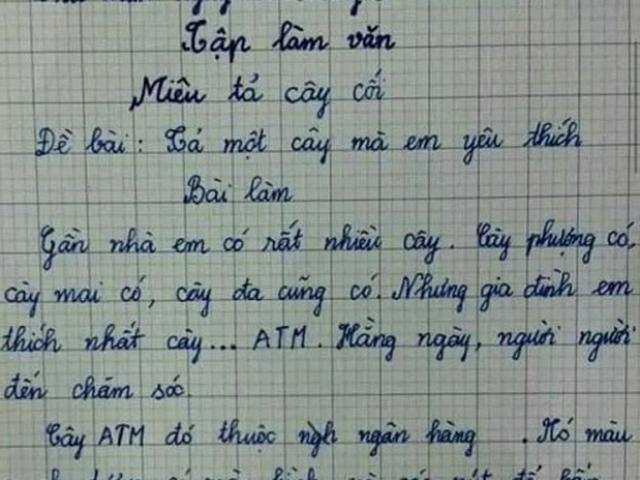 Tập làm văn
Miêu tả cây cối
Đề bài: Tả một cây mà em yêu thích
Bài làm
Gần nhà em có rất nhiều cây. Cây phượng có,
cây mai có, cây đa cũng có. Nhưng gia đình em
thích nhất cây... ATM. Hằng ngày, người người
đến chăm sóc.
Cây ATM đó thuộc ngh ngân hàng . Nó màu